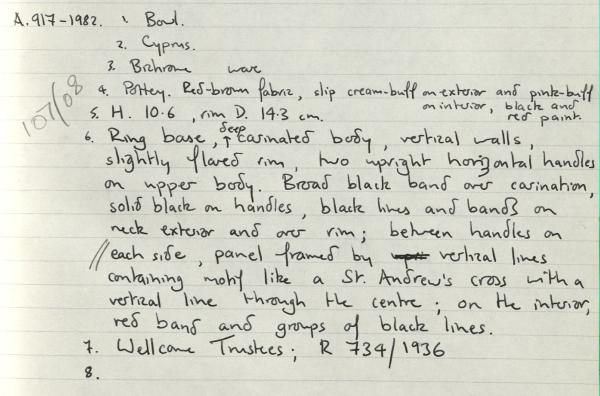 A.917-1982. 1. Bowl.
2. Cyprus.
3. Bichrome ware
4. Pottery. Red-brown fabric, slip cream-buff on exterior and pink-buff
on interior, black and
red paint.
5. H. 10.6, rim D. 14.3 cm.
107/08
6. Ring base, deep ↑ carinated body, vertical walls,
slightly flared rim, two upright horizontal handles
on upper body. Broad black band over carination,
solid black on handles, black lines and bands on
neck exterior and over rim; between handles on
// each side, panel framed by vertical lines
containing motif like a St. Andrew's cross with a
vertical line through the centre; on the interior,
red band and groups of black lines.
7. Wellcome Trustees; R 734/1936
8.